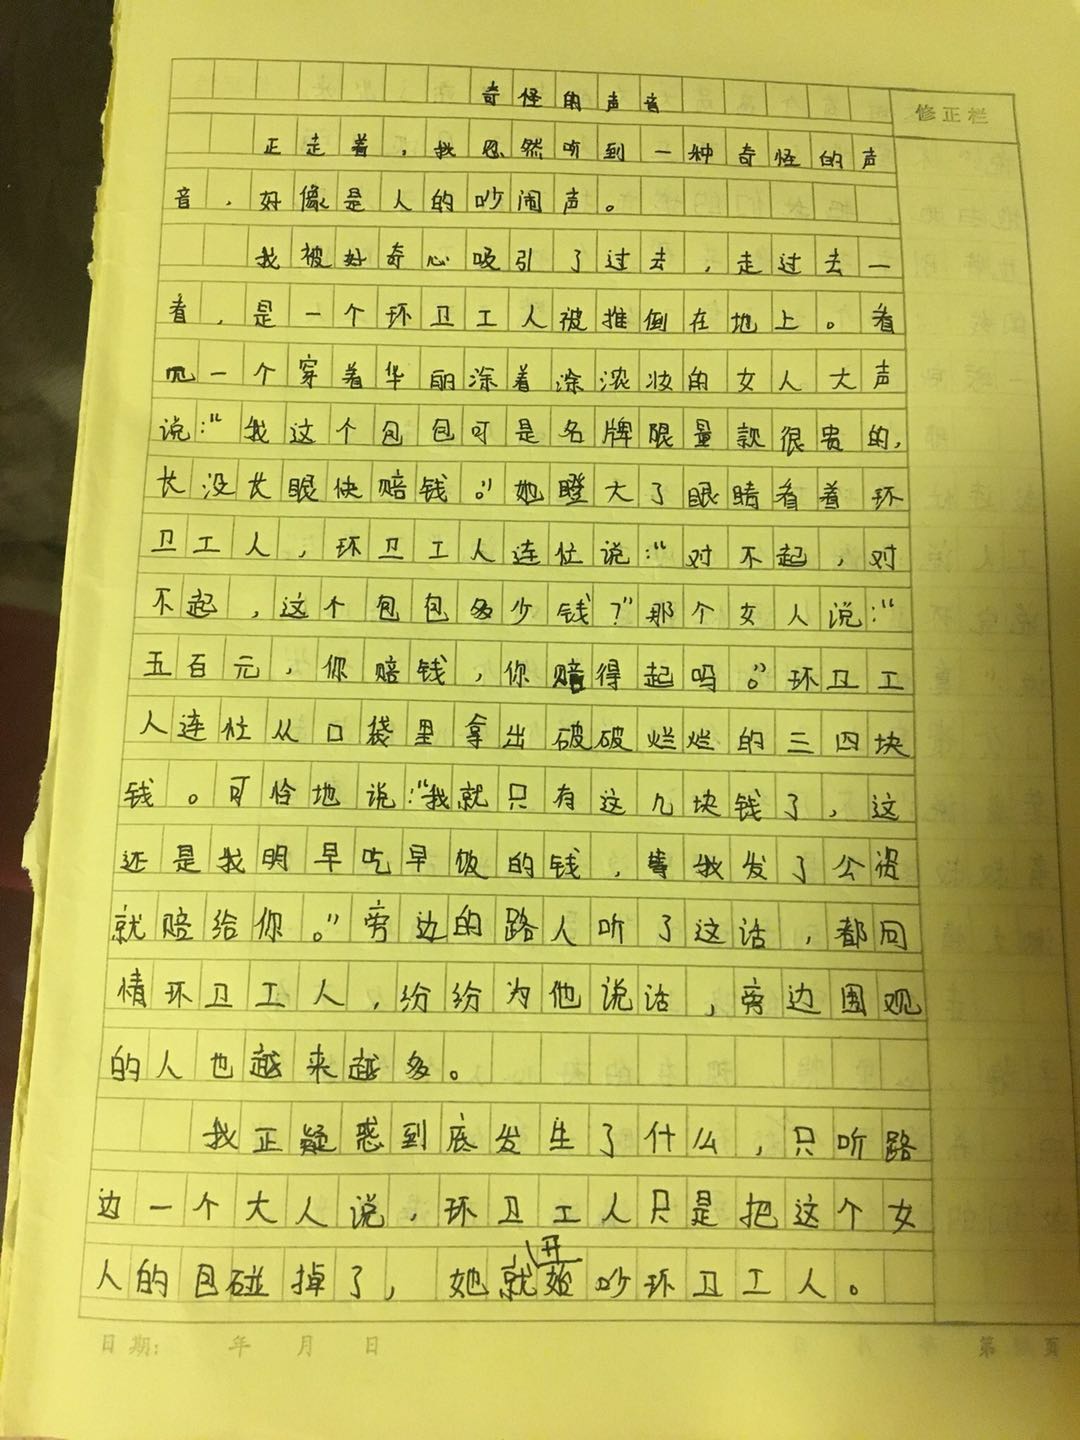 奇怪的声音
修正栏
正走着，我忽然听到一种奇怪的声
音，好像是人的吵闹声。
我被好奇心吸引了过去，走过去一
看，是一个环卫工人被推倒在地上。看
见一个穿着华丽涂着涂浓妆的女人大声
说：“我这个包包可是名牌限量款很贵的，
长没长眼快赔钱。”她瞪大了眼睛看着环
卫工人，环卫工人连忙说：“对不起，对
不起，这个包包多少钱？”那个女人说：“
五百元，你赔钱，你赔得起吗。”环卫工
人连忙从口袋里拿出破破烂烂的三四块
钱。可怜地说：“我就只有这几块钱了，这
还是我明早吃早饭的钱，等我发了公资
就赔给你。”旁边的路人听了这话，都同
情环卫工人，纷纷为他说话，旁边围观
的人也越来越多。
我正疑惑到底发生了什么，只听路
边一个大人说，环卫工人只是把这个女
人的包碰掉了，她就开始吵环卫工人。
日期： 年 月 日 第 页